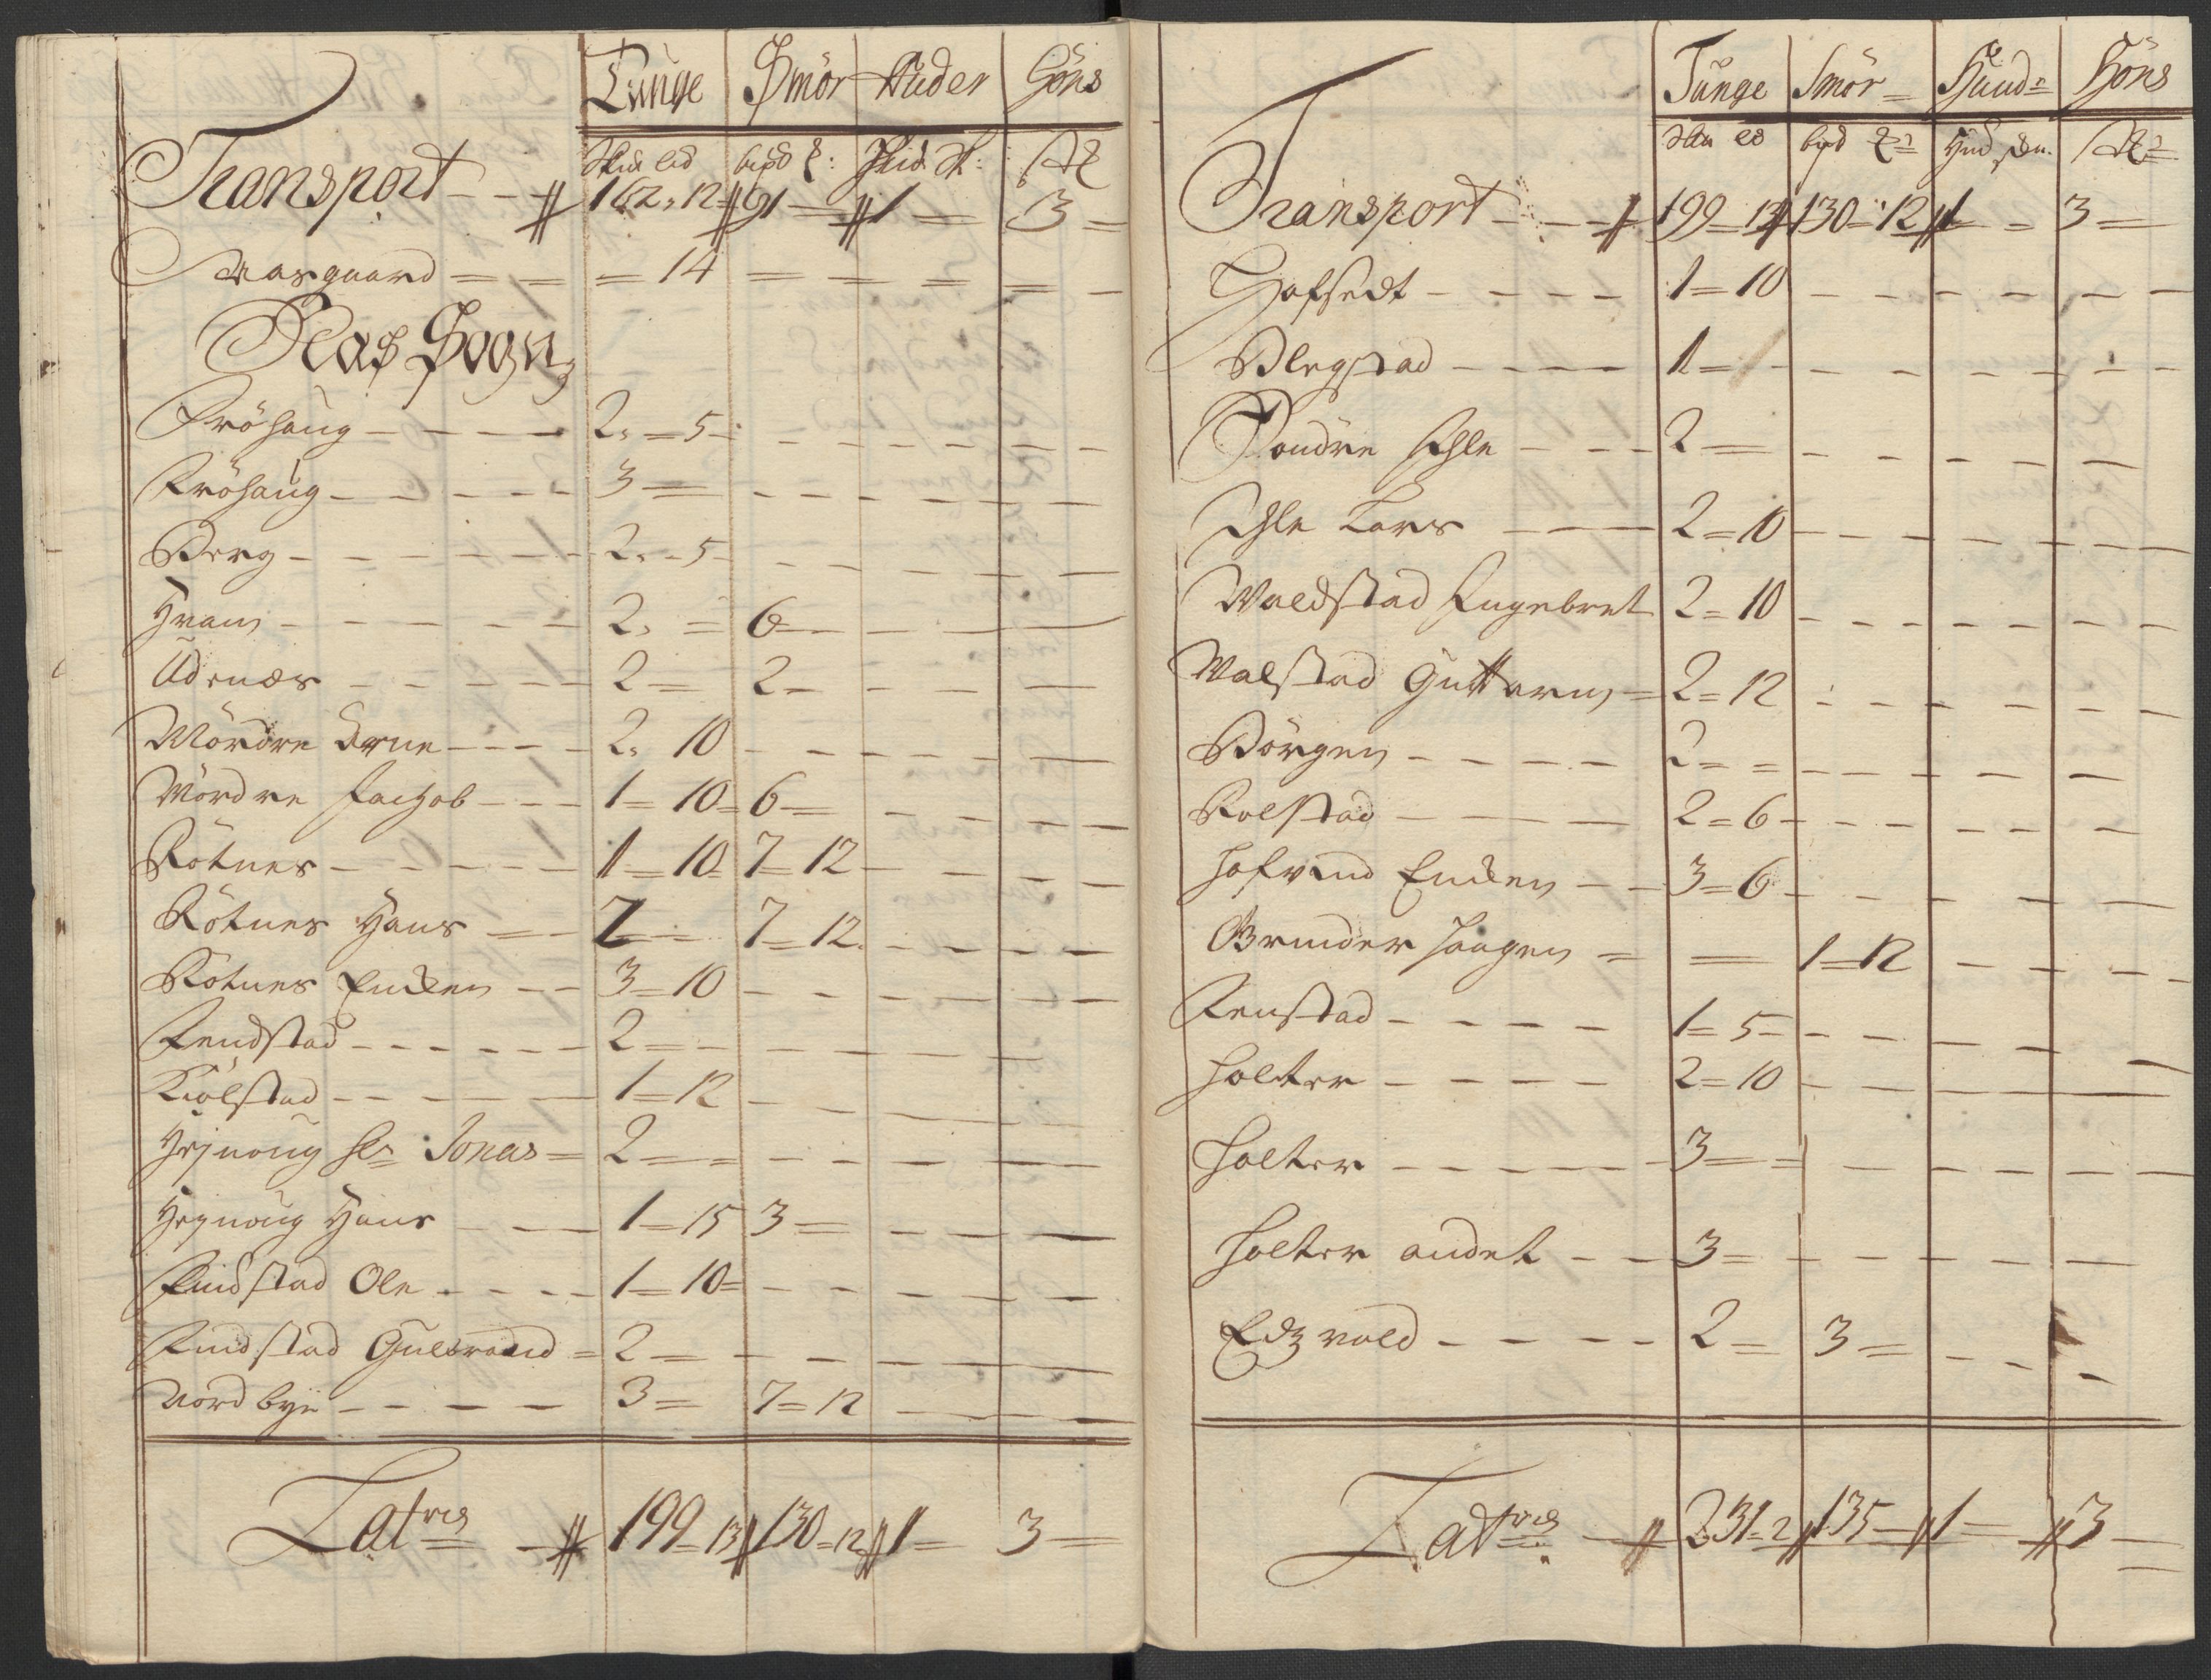 Tunge Smör Huder Höns
Skid led bipd ℔: Hud Sk: St
Transport 162 , 12 91 1 3
Aasgaard 14
Næs Sogn
Fröhaug 2 , 5
Fröhaug 3
Berg 2 , 5
Hvam 2 6
Udenæs 2 2
Mördre Arne 2 , 10
Mördre Jachob 1 = 10 6
Rötnes 1 = 10 7 = 12
Rötnes Hans 2 7 = 12
Rötnes Enken 3 = 10
Fendstad 2
Kiölstad 1 = 12
Hejnoug Hr Jonas 2
Hejnoug Hans 1 = 15 3
Findstad Ole 1 = 10
Findstad Gulbrand 2
Nordbye 3 7 = 12
Latris 199 = 13 130 = 12 1 3
Tunge Smör Huud Höns
bipd Hud Skn.
Transport 199 = 13 130 = 12 1 3
Hofsedt 1 = 10
Blegstad 1
Söndre Ihle 2
Ihle Lars 2 = 10
Waldstad Engebret 2 = 10
Walstad Guttorm 2 = 12
Börgen 2
Rolstad 2 = 6
Hofvind Enken 3 = 6
Grinder Haagen 1 = 12
Fenstad 1 = 5
Holter 2 = 10
Holter 3
Holter andet 3
Edzvold 2 3
Latris 231 = 2 135 1 3